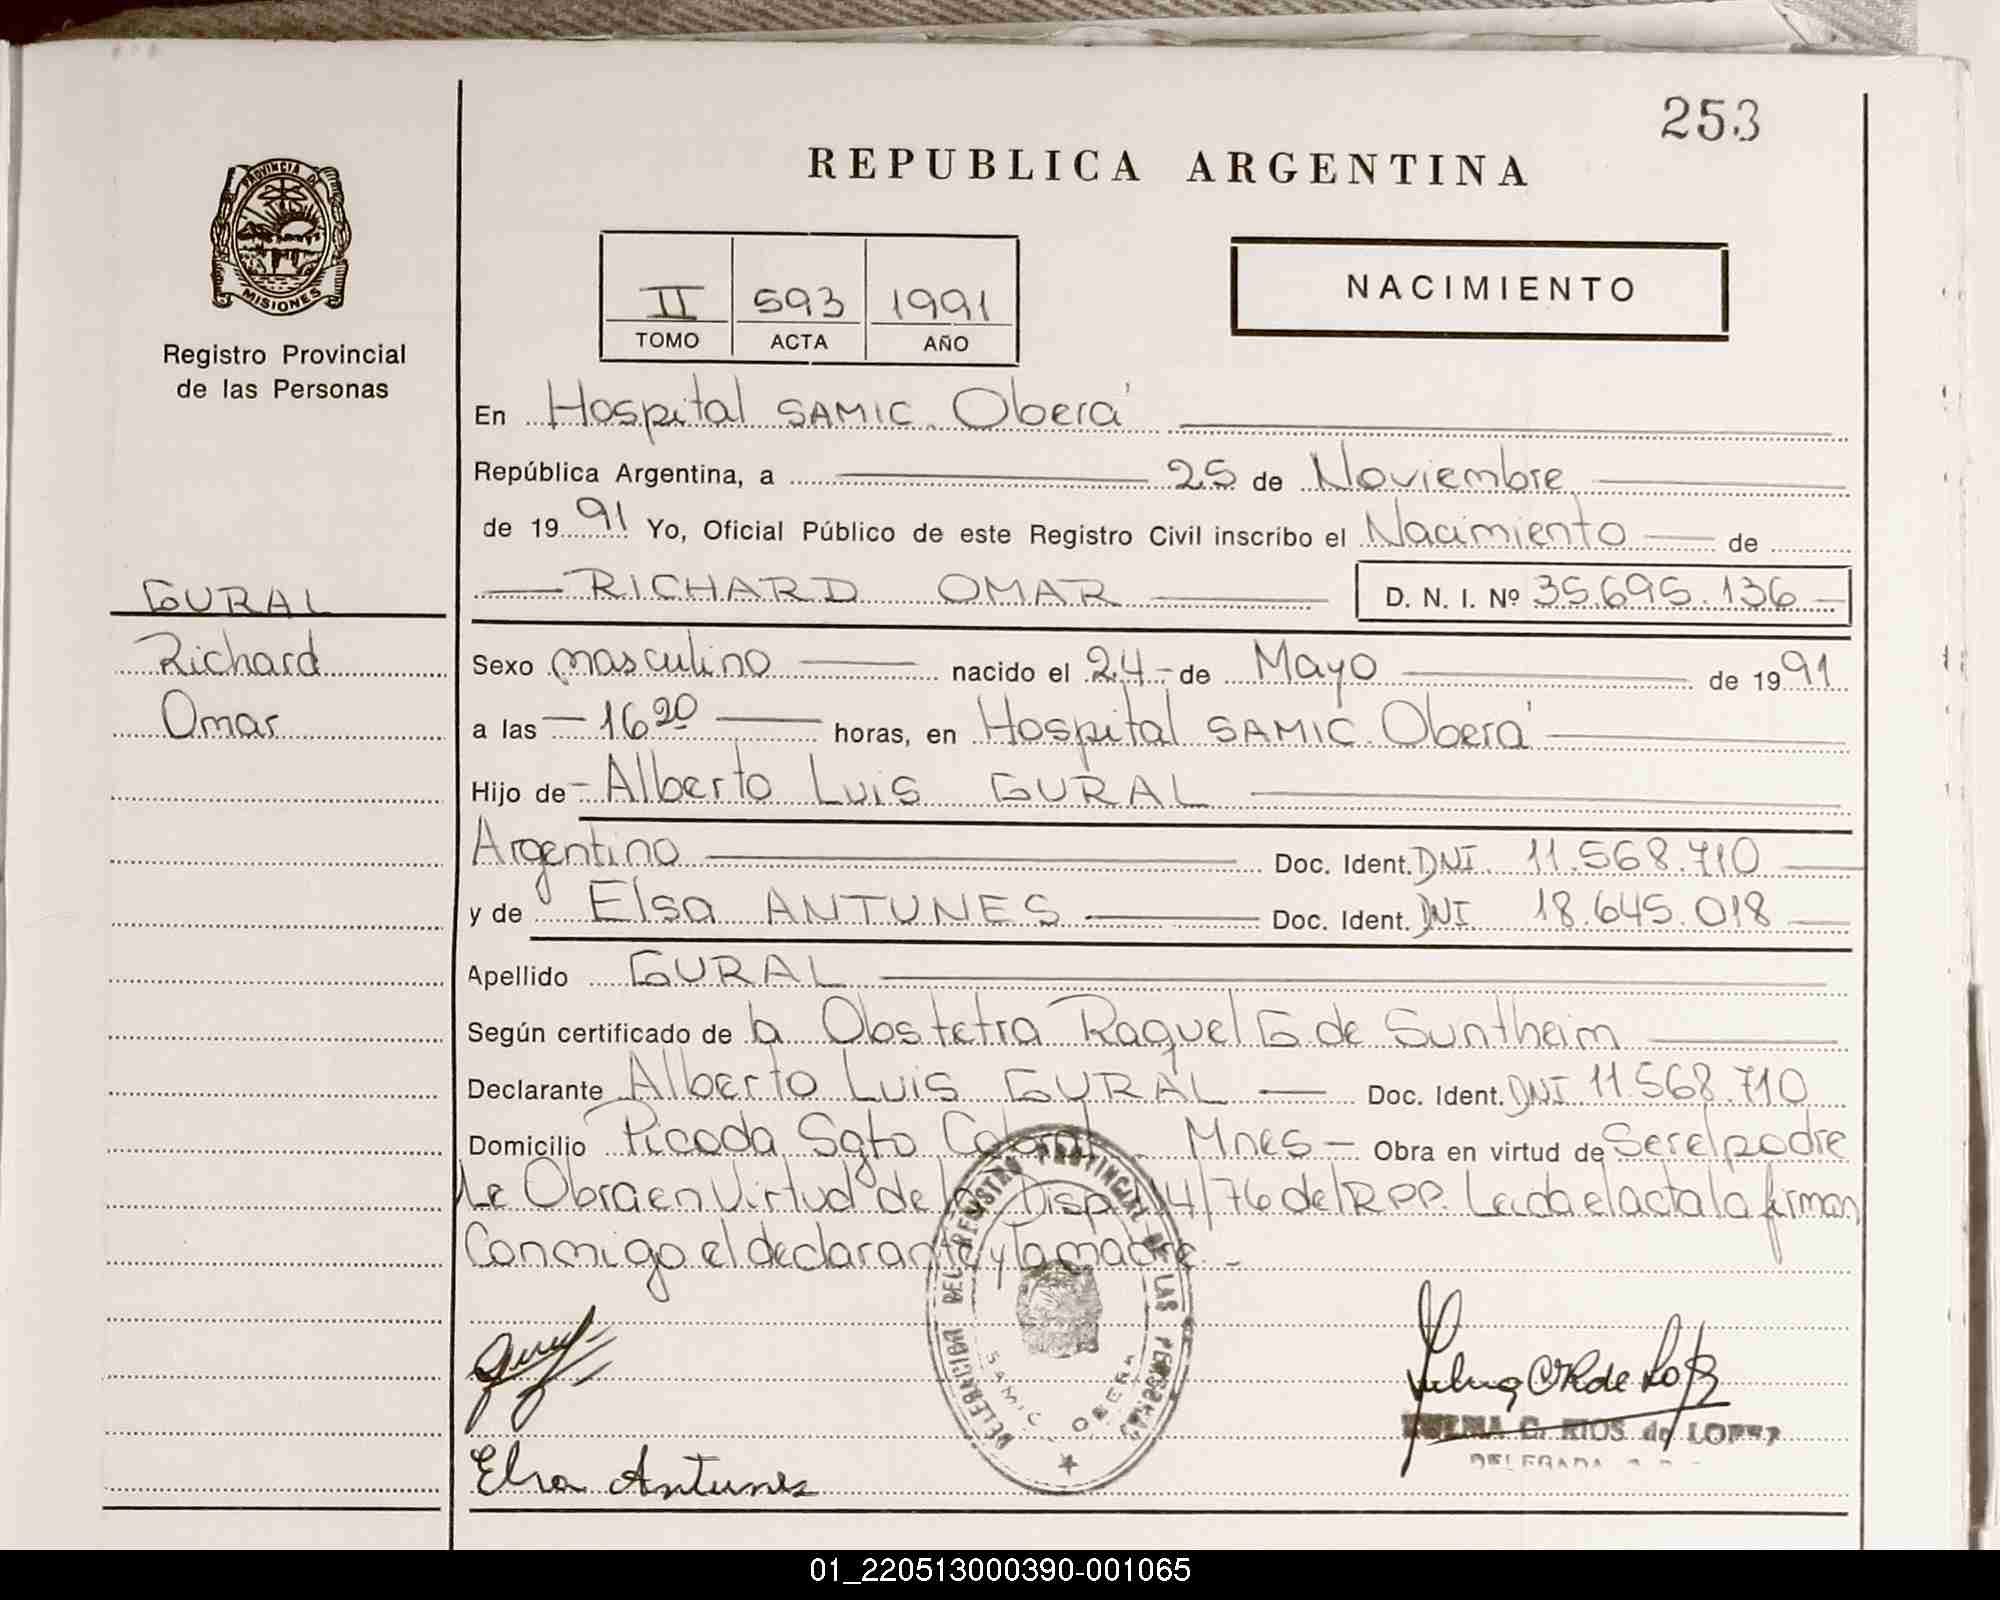 253
REPUBLICA ARGENTINA
PROVINCIA DE
MISIONES
Registro Provincial
de las Personas
II 593 1991
TOMO ACTA AÑO
NACIMIENTO
GURAL
Richard
Omar
En Hospital SAMIC. Oberá
República Argentina, a 25 de Noviembre
de 1991 Yo, Oficial Público de este Registro Civil inscribo el Nacimiento de
RICHARD OMAR D. N. I. Nº 35.695.136
Sexo masculino nacido el 24 de Mayo de 1991
a las 16 20 horas, en Hospital SAMIC. Oberá
Hijo de Alberto Luis GURAL
Argentino Doc. Ident. DNI 11.568.710
y de Elsa ANTUNES Doc. Ident. DNI 18.645.018
Apellido GURAL
Según certificado de la Obstetra Raquel G de Suntheim
Declarante Alberto Luis GURAL Doc. Ident. DNI 11.568.710
Domicilio Picada Sgto Cabral Mnes - Obra en virtud de Ser el padre
Le Obra en Virtud de la Disp 14/76 del R.P.P. Leida el acta la firman
Conmigo el declarante y la madre. -
DELEGACION DEL REGISTRO PROVINCIAL DE LAS PERSONAS
SAMIC - OBERA
Elsa Antunes
G. RIOS de LOPEZ
DELEGADA
01_220513000390-001065